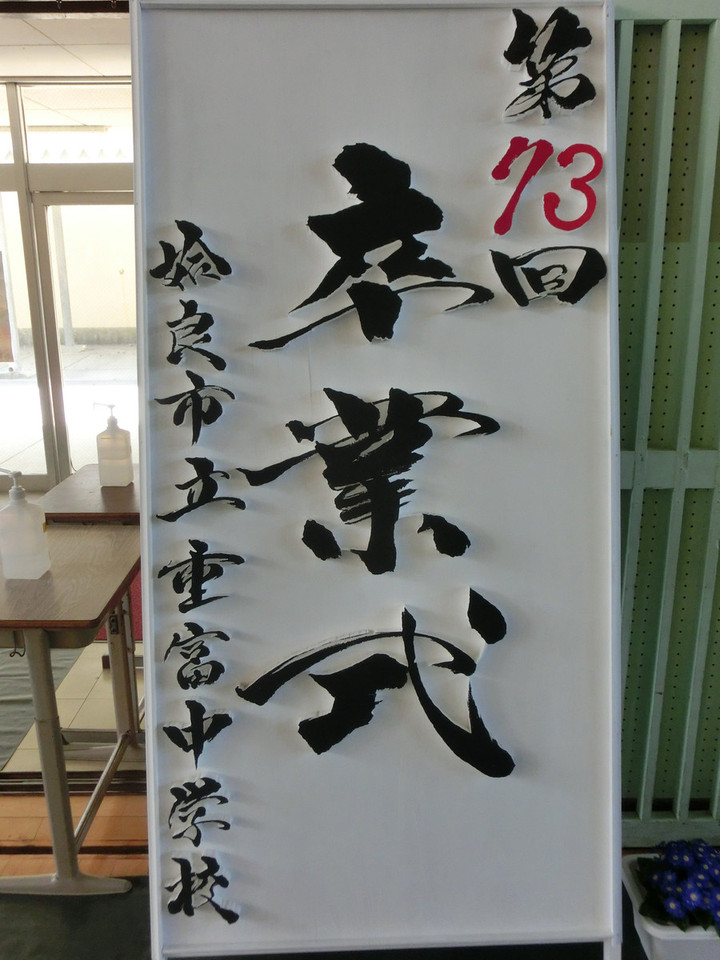 第73回
卒業式
姶良市立重富中学校